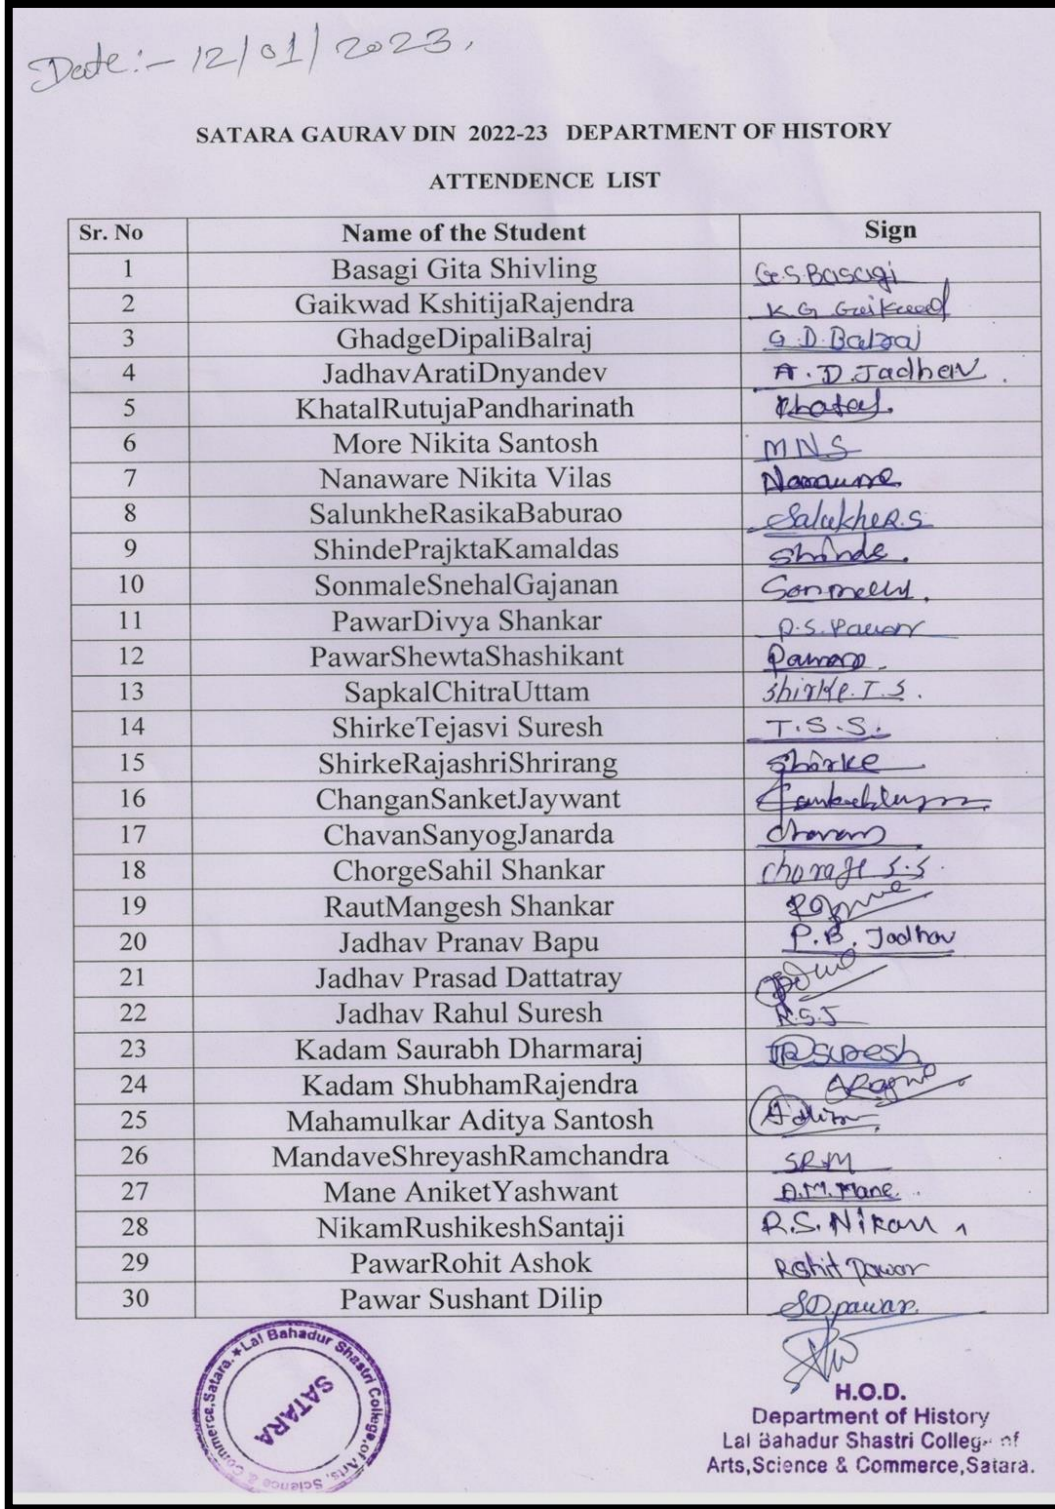 Date:- 12/01/2023.
SATARA GAURAV DIN 2022-23 DEPARTMENT OF HISTORY
ATTENDENCE LIST
Sr. No Name of the Student Sign
1 Basagi Gita Shivling G.S.Basagi
2 Gaikwad KshitijaRajendra K.G. Gaikwad
3 GhadgeDipaliBalraj G.D.Balraj
4 JadhavAratiDnyandev A.D.Jadhav
5 KhatalRutujaPandharinath Khatal.
6 More Nikita Santosh MNS
7 Nanaware Nikita Vilas
8 SalunkheRasikaBaburao SalukheR.S
9 ShindePrajktaKamaldas Shinde.
10 SonmaleSnehalGajanan
11 PawarDivya Shankar P.S.Pawar
12 PawarShewtaShashikant
13 SapkalChitraUttam Shirke.T.S.
14 ShirkeTejasvi Suresh T.S.S.
15 ShirkeRajashriShrirang Shirke
16 ChanganSanketJaywant
17 ChavanSanyogJanarda Chavan
18 ChorgeSahil Shankar Chorage S.S.
19 RautMangesh Shankar
20 Jadhav Pranav Bapu P.B. Jadhav
21 Jadhav Prasad Dattatray
22 Jadhav Rahul Suresh R.S.J
23 Kadam Saurabh Dharmaraj
24 Kadam ShubhamRajendra
25 Mahamulkar Aditya Santosh
26 MandaveShreyashRamchandra SRM
27 Mane AniketYashwant A.M.Mane.
28 NikamRushikeshSantaji R.S.Nikam
29 PawarRohit Ashok Rohit Pawar
30 Pawar Sushant Dilip S.D.pawar.
Lal Bahadur Shastri College of Arts, Science & Commerce,Satara.
SATARA
H.O.D.
Department of History
Lal Bahadur Shastri College of
Arts,Science & Commerce,Satara.